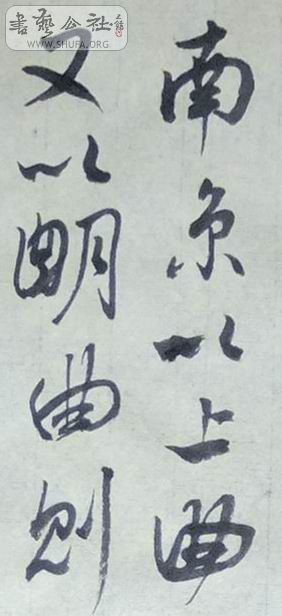 南京以上曲
又以明曲則
書藝公社
www.SHUFA.ORG